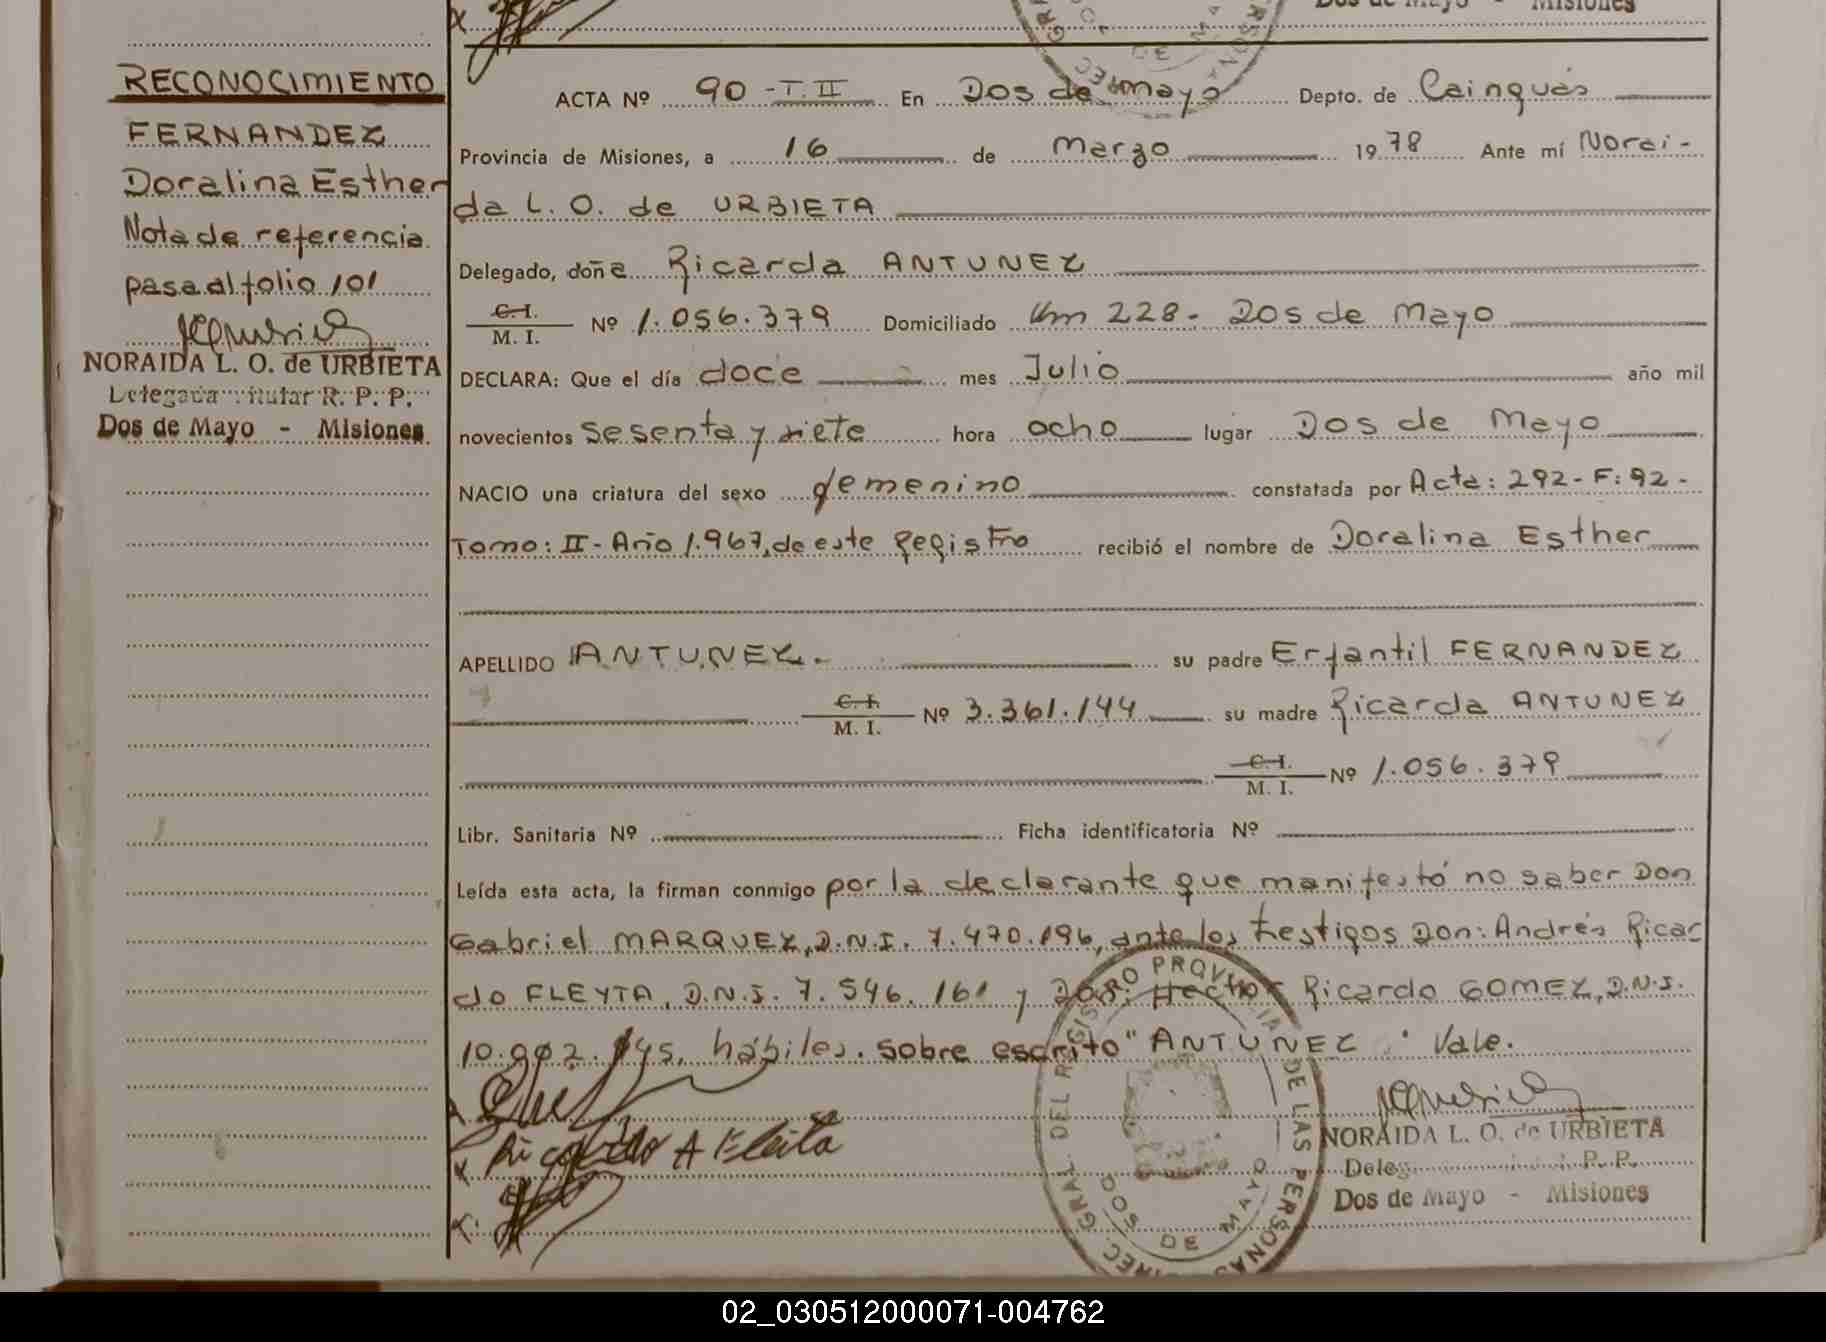 Dos de Mayo - Misiones
RECONOCIMIENTO
FERNANDEZ
Doralina Esther
Nota de referencia
pasa al folio 101
NORAIDA L. O. de URBIETA
Delegada Titular R. P. P.
Dos de Mayo - Misiones
ACTA Nº 90 - T. II En Dos de Mayo Depto. de Cainguás
Provincia de Misiones, a 16 de Marzo 1978 Ante mí Norai-
da L. O. de URBIETA
Delegado, doña Ricarda ANTUNEZ
C. I. / M. I. Nº 1.056.379 Domiciliado Km 228 - Dos de Mayo
DECLARA: Que el día doce mes Julio año mil
novecientos sesenta y siete hora ocho lugar Dos de Mayo
NACIO una criatura del sexo femenino constatada por Acta: 292 - F: 92 -
Tomo: II - Año 1.967, de este Registro recibió el nombre de Doralina Esther
APELLIDO ANTUNEZ. su padre Erfantil FERNANDEZ
C. I. / M. I. Nº 3.361.144 su madre Ricarda ANTUNEZ
C. I. / M. I. Nº 1.056.379
Libr. Sanitaria Nº Ficha identificatoria Nº
Leída esta acta, la firman conmigo por la declarante que manifestó no saber Don
Gabriel MARQUEZ, D.N.I. 7.470.196, ante los testigos Don: Andrés Ricar
do FLEYTA, D.N.I. 7.546.161 y Don: Hector Ricardo GOMEZ, D.N.I.
10.902.945, hábiles. Sobre escrito "ANTUNEZ" Vale.
Ricardo A Fleita
NORAIDA L. O. de URBIETA
Deleg P. P.
Dos de Mayo - Misiones
DIREC. GRAL. DEL REGISTRO PROVINCIAL DE LAS PERSONAS
DOS DE MAYO
02_030512000071-004762